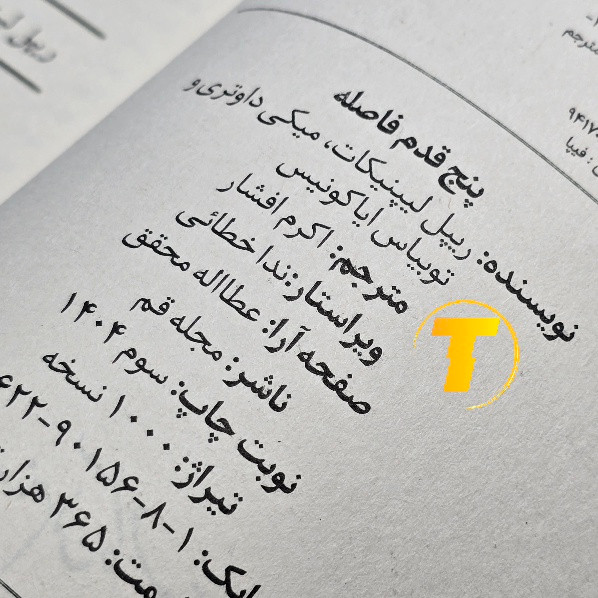 پنج قدم فاصله
نویسنده: ریپل لیپنیکات، میکی داوتری و
توبیاس ایاکونیس
مترجم: اکرم افشار
ویراستار: ندا خطائی
صفحه آرا: عطااله محقق
ناشر: مجله قم
نوبت چاپ: سوم ۱۴۰۴
تیراژ: ۱۰۰۰ نسخه
۶۲۲-۹۰۱۵۶-۸-۱
۳۶۵
مترجم
۹۴۱۷
: فیپا
ریپل
T